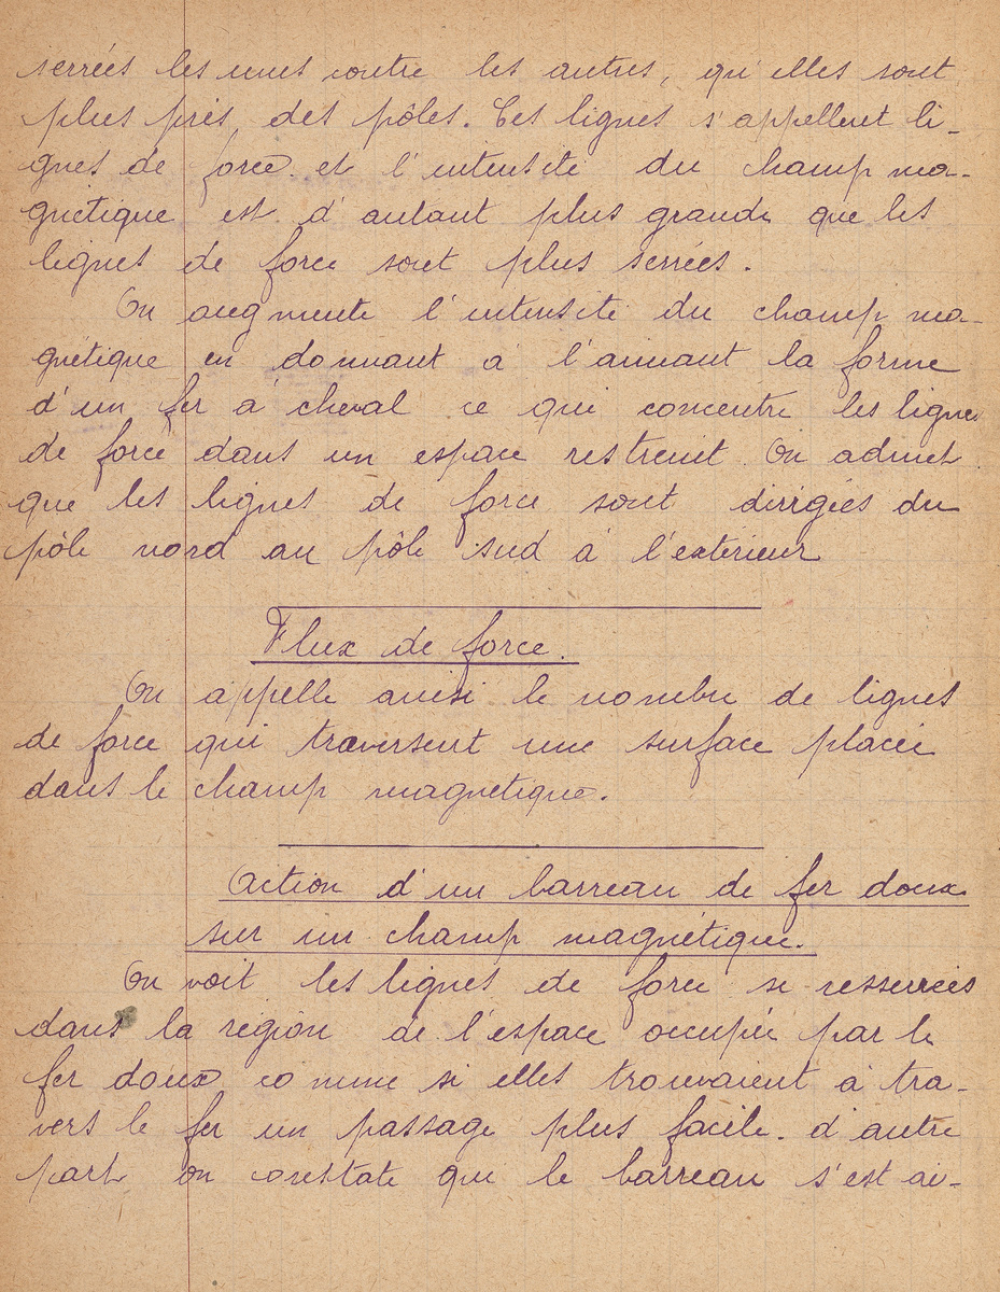 serrées les unes contre les autres, qu'elles sont
plus près des pôles. Ces lignes s'appellent li-
gnes de force et l'intensité du champ ma-
gnétique est d'autant plus grande que les
lignes de force sont plus serrées.
On augmente l'intensité du champ ma-
gnétique en donnant à l'aimant la forme
d'un fer à cheval ce qui concentre les lignes
de force dans un espace restreint. On admet
que les lignes de force sont dirigées du
pôle nord au pôle sud à l'extérieur
Flux de force.
On appelle ainsi le nombre de lignes
de force qui traversent une surface placée
dans le champ magnétique.
Action d'un barreau de fer doux
sur un champ magnétique.
On voit les lignes de force se resserrées
dans la région de l'espace occupée par le
fer doux comme si elles trouvaient à tra-
vers le fer un passage plus facile. d'autre
part on constate que le barreau s'est ai-